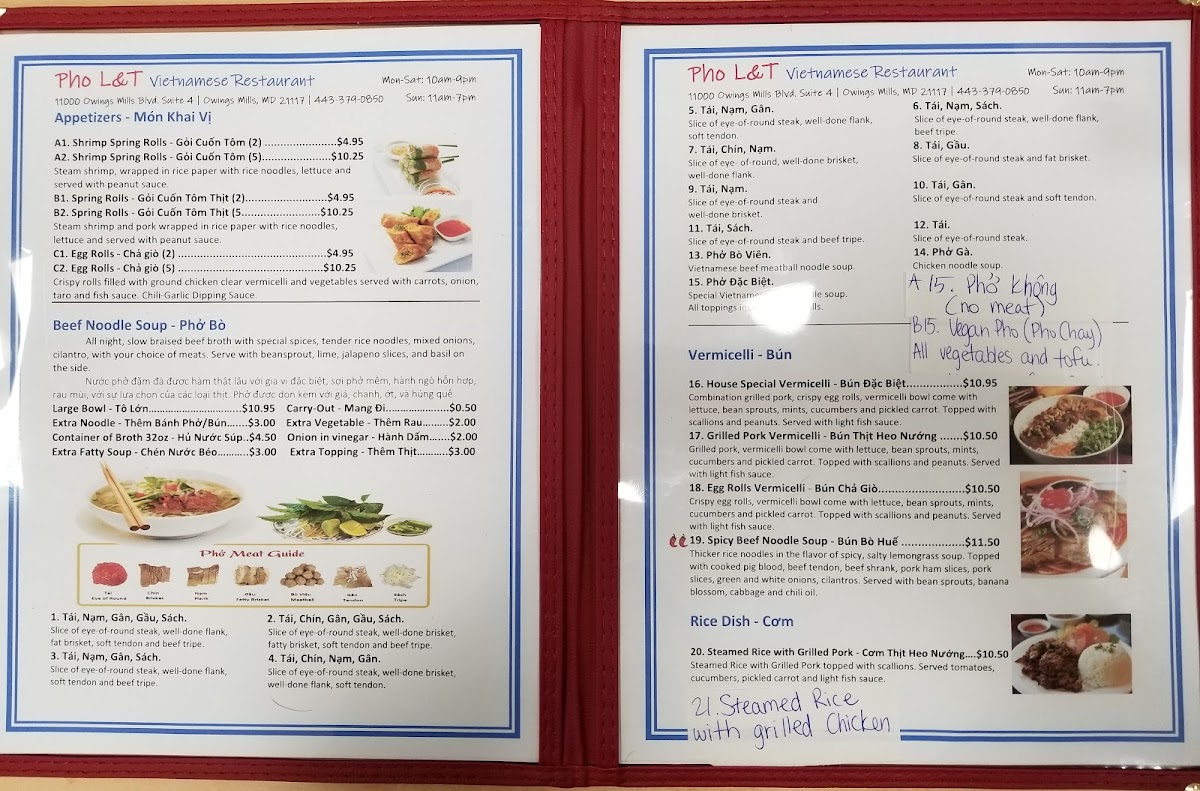 Pho L&T Vietnamese Restaurant Mon-Sat: 10am-9pm
11000 Owings Mills Blvd. Suite 4 | Owings Mills, MD 21117 | 443-379-0850 Sun: 11am-7pm
Appetizers - Món Khai Vị
A1. Shrimp Spring Rolls - Gỏi Cuốn Tôm (2) ........................$4.95
A2. Shrimp Spring Rolls - Gỏi Cuốn Tôm (5).......................$10.25
Steam shrimp, wrapped in rice paper with rice noodles, lettuce and
served with peanut sauce.
B1. Spring Rolls - Gỏi Cuốn Tôm Thịt (2)...........................$4.95
B2. Spring Rolls - Gỏi Cuốn Tôm Thịt (5.......................$10.25
Steam shrimp and pork wrapped in rice paper with rice noodles,
lettuce and served with peanut sauce.
C1. Egg Rolls - Chả giò (2) .......................................$4.95
C2. Egg Rolls - Chả giò (5) .....................................$10.25
Crispy rolls filled with ground chicken clear vermicelli and vegetables served with carrots, onion,
taro and fish sauce. Chili-Garlic Dipping Sauce.
Beef Noodle Soup - Phở Bò
All night, slow braised beef broth with special spices, tender rice noodles, mixed onions,
cilantro, with your choice of meats. Serve with beansprout, lime, jalapeno slices, and basil on
the side.
Nước phở đậm đà được hàm thật lâu với gia vị đặc biệt, sợi phở mềm, hành ngò hỗn hợp,
rau mùi, với sự lựa chọn của các loại thịt. Phở được dọn kèm với giá, chanh, ớt, và húng quế.
Large Bowl - Tô Lớn.........................$10.95 Carry-Out - Mang Đi....................$0.50
Extra Noodle - Thêm Bánh Phở/Bún.......$3.00 Extra Vegetable - Thêm Rau.......$2.00
Container of Broth 32oz - Hủ Nước Súp..$4.50 Onion in vinegar - Hành Dấm......$2.00
Extra Fatty Soup - Chén Nước Béo...........$3.00 Extra Topping - Thêm Thịt..........$3.00
Phở Meat Guide
Tái Chín Nạm Gầu Bò Viên Gân Sách
Eye of Round Brisket Flank Fatty Brisket Meatball Tendon Tripe
1. Tái, Nạm, Gân, Gầu, Sách.
Slice of eye-of-round steak, well-done flank,
fat brisket, soft tendon and beef tripe.
2. Tái, Chín, Gân, Gầu, Sách.
Slice of eye-of-round steak, well-done brisket,
fatty brisket, soft tendon and beef tripe.
3. Tái, Nạm, Gân, Sách.
Slice of eye-of-round steak, well-done flank,
soft tendon and beef tripe.
4. Tái, Chín, Nạm, Gân.
Slice of eye-of-round steak, well-done brisket,
well-done flank, soft tendon.
Pho L&T Vietnamese Restaurant Mon-Sat: 10am-9pm
11000 Owings Mills Blvd. Suite 4 | Owings Mills, MD 21117 | 443-379-0850 Sun: 11am-7pm
5. Tái, Nạm, Gân.
Slice of eye-of-round steak, well-done flank,
soft tendon.
6. Tái, Nạm, Sách.
Slice of eye-of-round steak, well-done flank,
beef tripe.
7. Tái, Chín, Nạm.
Slice of eye- of-round, well-done brisket,
well-done flank.
8. Tái, Gầu.
Slice of eye-of-round steak and fat brisket.
9. Tái, Nạm.
Slice of eye-of-round steak and
well-done brisket.
10. Tái, Gân.
Slice of eye-of-round steak and soft tendon.
11. Tái, Sách.
Slice of eye-of-round steak and beef tripe.
12. Tái.
Slice of eye-of-round steak.
13. Phở Bò Viên.
Vietnamese beef meatball noodle soup.
14. Phở Gà.
Chicken noodle soup.
15. Phở Đặc Biệt.
Special soup.
All toppings
A 15. Phở Không
(no meat)
B15. Vegan Pho (Pho Chay)
All vegetables and tofu.
Vermicelli - Bún
16. House Special Vermicelli - Bún Đặc Biệt.................$10.95
Combination grilled pork, crispy egg rolls, vermicelli bowl come with
lettuce, bean sprouts, mints, cucumbers and pickled carrot. Topped with
scallions and peanuts. Served with light fish sauce.
17. Grilled Pork Vermicelli - Bún Thịt Heo Nướng .......$10.50
Grilled pork, vermicelli bowl come with lettuce, bean sprouts, mints,
cucumbers and pickled carrot. Topped with scallions and peanuts. Served
with light fish sauce.
18. Egg Rolls Vermicelli - Bún Chả Giò........................$10.50
Crispy egg rolls, vermicelli bowl come with lettuce, bean sprouts, mints,
cucumbers and pickled carrot. Topped with scallions and peanuts. Served
with light fish sauce.
19. Spicy Beef Noodle Soup - Bún Bò Huế ..................$11.50
Thicker rice noodles in the flavor of spicy, salty lemongrass soup. Topped
with cooked pig blood, beef tendon, beef shrank, pork ham slices, pork
slices, green and white onions, cilantros. Served with bean sprouts, banana
blossom, cabbage and chili oil.
Rice Dish - Cơm
20. Steamed Rice with Grilled Pork - Cơm Thịt Heo Nướng....$10.50
Steamed Rice with Grilled Pork topped with scallions. Served tomatoes,
cucumbers, pickled carrot and light fish sauce.
21. Steamed Rice
with grilled Chicken